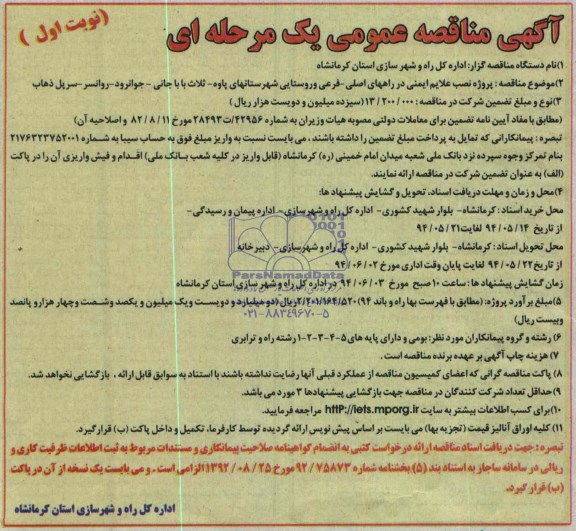 آگهی مناقصه عمومی یک مرحله ای
(نوبت اول)
۱)نام دستگاه مناقصه گزار: اداره کل راه و شهر سازی استان کرمانشاه
۲)موضوع مناقصه : پروژه نصب علایم ایمنی در راههای اصلی-فرعی وروستایی شهرستانهای پاوه- ثلاث با با جانی - جوانرود-روانسر-سرپل ذهاب
۳)نوع و مبلغ تضمین شرکت در مناقصه : ۱۳/۲۰۰/۰۰۰ (سیزده میلیون و دویست هزار ریال )
(مطابق با مفاد آیین نامه تضمین برای معاملات دولتی مصوبه هیات وزیران به شماره ۴۲۹۵۶/ت۲۸۴۹۳ مورخ ۱۱ / ۸ / ۸۲ و اصلاحیه آن)
تبصره : پیمانکارانی که تمایل به پرداخت مبلغ تضمین را داشته باشند ، می بایست نسبت به واریز مبلغ فوق به حساب سیبا به شماره ۲۱۷۶۳۲۳۷۵۲۰۰۱
بنام تمرکز وجوه سپرده نزد بانک ملی شعبه میدان امام خمینی (ره) کرمانشاه (قابل واریز در کلیه شعب بانک ملی) اقدام و فیش واریزی آن را در پاکت
(الف) به عنوان تضمین شرکت در مناقصه ارائه نمایند.
۴)محل و زمان و مهلت دریافت اسناد، تحویل و گشایش پیشنهاد ها:
محل خرید اسناد : کرمانشاه- بلوار شهید کشوری- اداره کل راه و شهرسازی- اداره پیمان و رسیدگی-
از تاریخ ۱۴ / ۰۵ / ۹۴ لغایت ۲۱ / ۰۵ / ۹۴
محل تحویل اسناد: کرمانشاه- بلوار شهید کشوری- اداره کل راه و شهرسازی- دبیرخانه
از تاریخ ۲۲ / ۰۵ / ۹۴ لغایت پایان وقت اداری مورخ ۰۲ / ۰۶ / ۹۴
زمان گشایش پیشنهاد ها : ساعت ۱۰ صبح مورخ ۰۳ / ۰۶ / ۹۴ در اداره کل راه و شهر سازی استان کرمانشاه
۵)مبلغ بر آورد پروژه: (مطابق با فهرست بها راه و باند ۹۴) ۲/۲۰۱/۱۶۴/۵۲۰ریال (دو میلیارد و دویست ویک میلیون و یکصد وشصت وچهار هزار و پانصد
وبیست ریال)
۶) رشته و گروه پیمانکاران مورد نظر: بومی و دارای پایه های ۵-۴-۳-۲-۱ رشته راه و ترابری
۷) هزینه چاپ آگهی بر عهده برنده مناقصه است .
۸) پاکت مناقصه گرانی که اعضای کمیسیون مناقصه از عملکرد قبلی آنها رضایت نداشته باشند با استناد به سوابق قابل ارائه ، بازگشایی نخواهد شد.
۹)حداقل تعداد شرکت کنندگان در مناقصه جهت بازگشایی پیشنهادها ۳ مورد می باشد.
۱۰)برای کسب اطلاعات بیشتر به سایت httP://iets.mporg.ir مراجعه فرمایید.
۱۱) کلیه اوراق آنالیز قیمت (تجزیه بها) می بایست بر اساس پیش نویس ارائه گردیده توسط کارفرما، تکمیل و داخل پاکت (ب) قرار گیرد.
تبصره : جهت دریافت اسناد مناقصه ارائه درخواست کتبی به انضمام گواهینامه صلاحیت پیمانکاری و مستندات مربوط به ثبت اطلاعات ظرفیت کاری و
ریالی در سامانه ساجار به استناد بند (۵) بخشنامه شماره ۷۵۸۷۳/ ۹۲ مورخ ۲۵ / ۰۸ / ۱۳۹۲ الزامی است . و می بایست یک نسخه از آن در پاکت
(ب) قرار گیرد.
اداره کل راه و شهرسازی استان کرمانشاه
ParsNamadData
۰۲۱-۸۸۳۴۹۶۷۰-۵